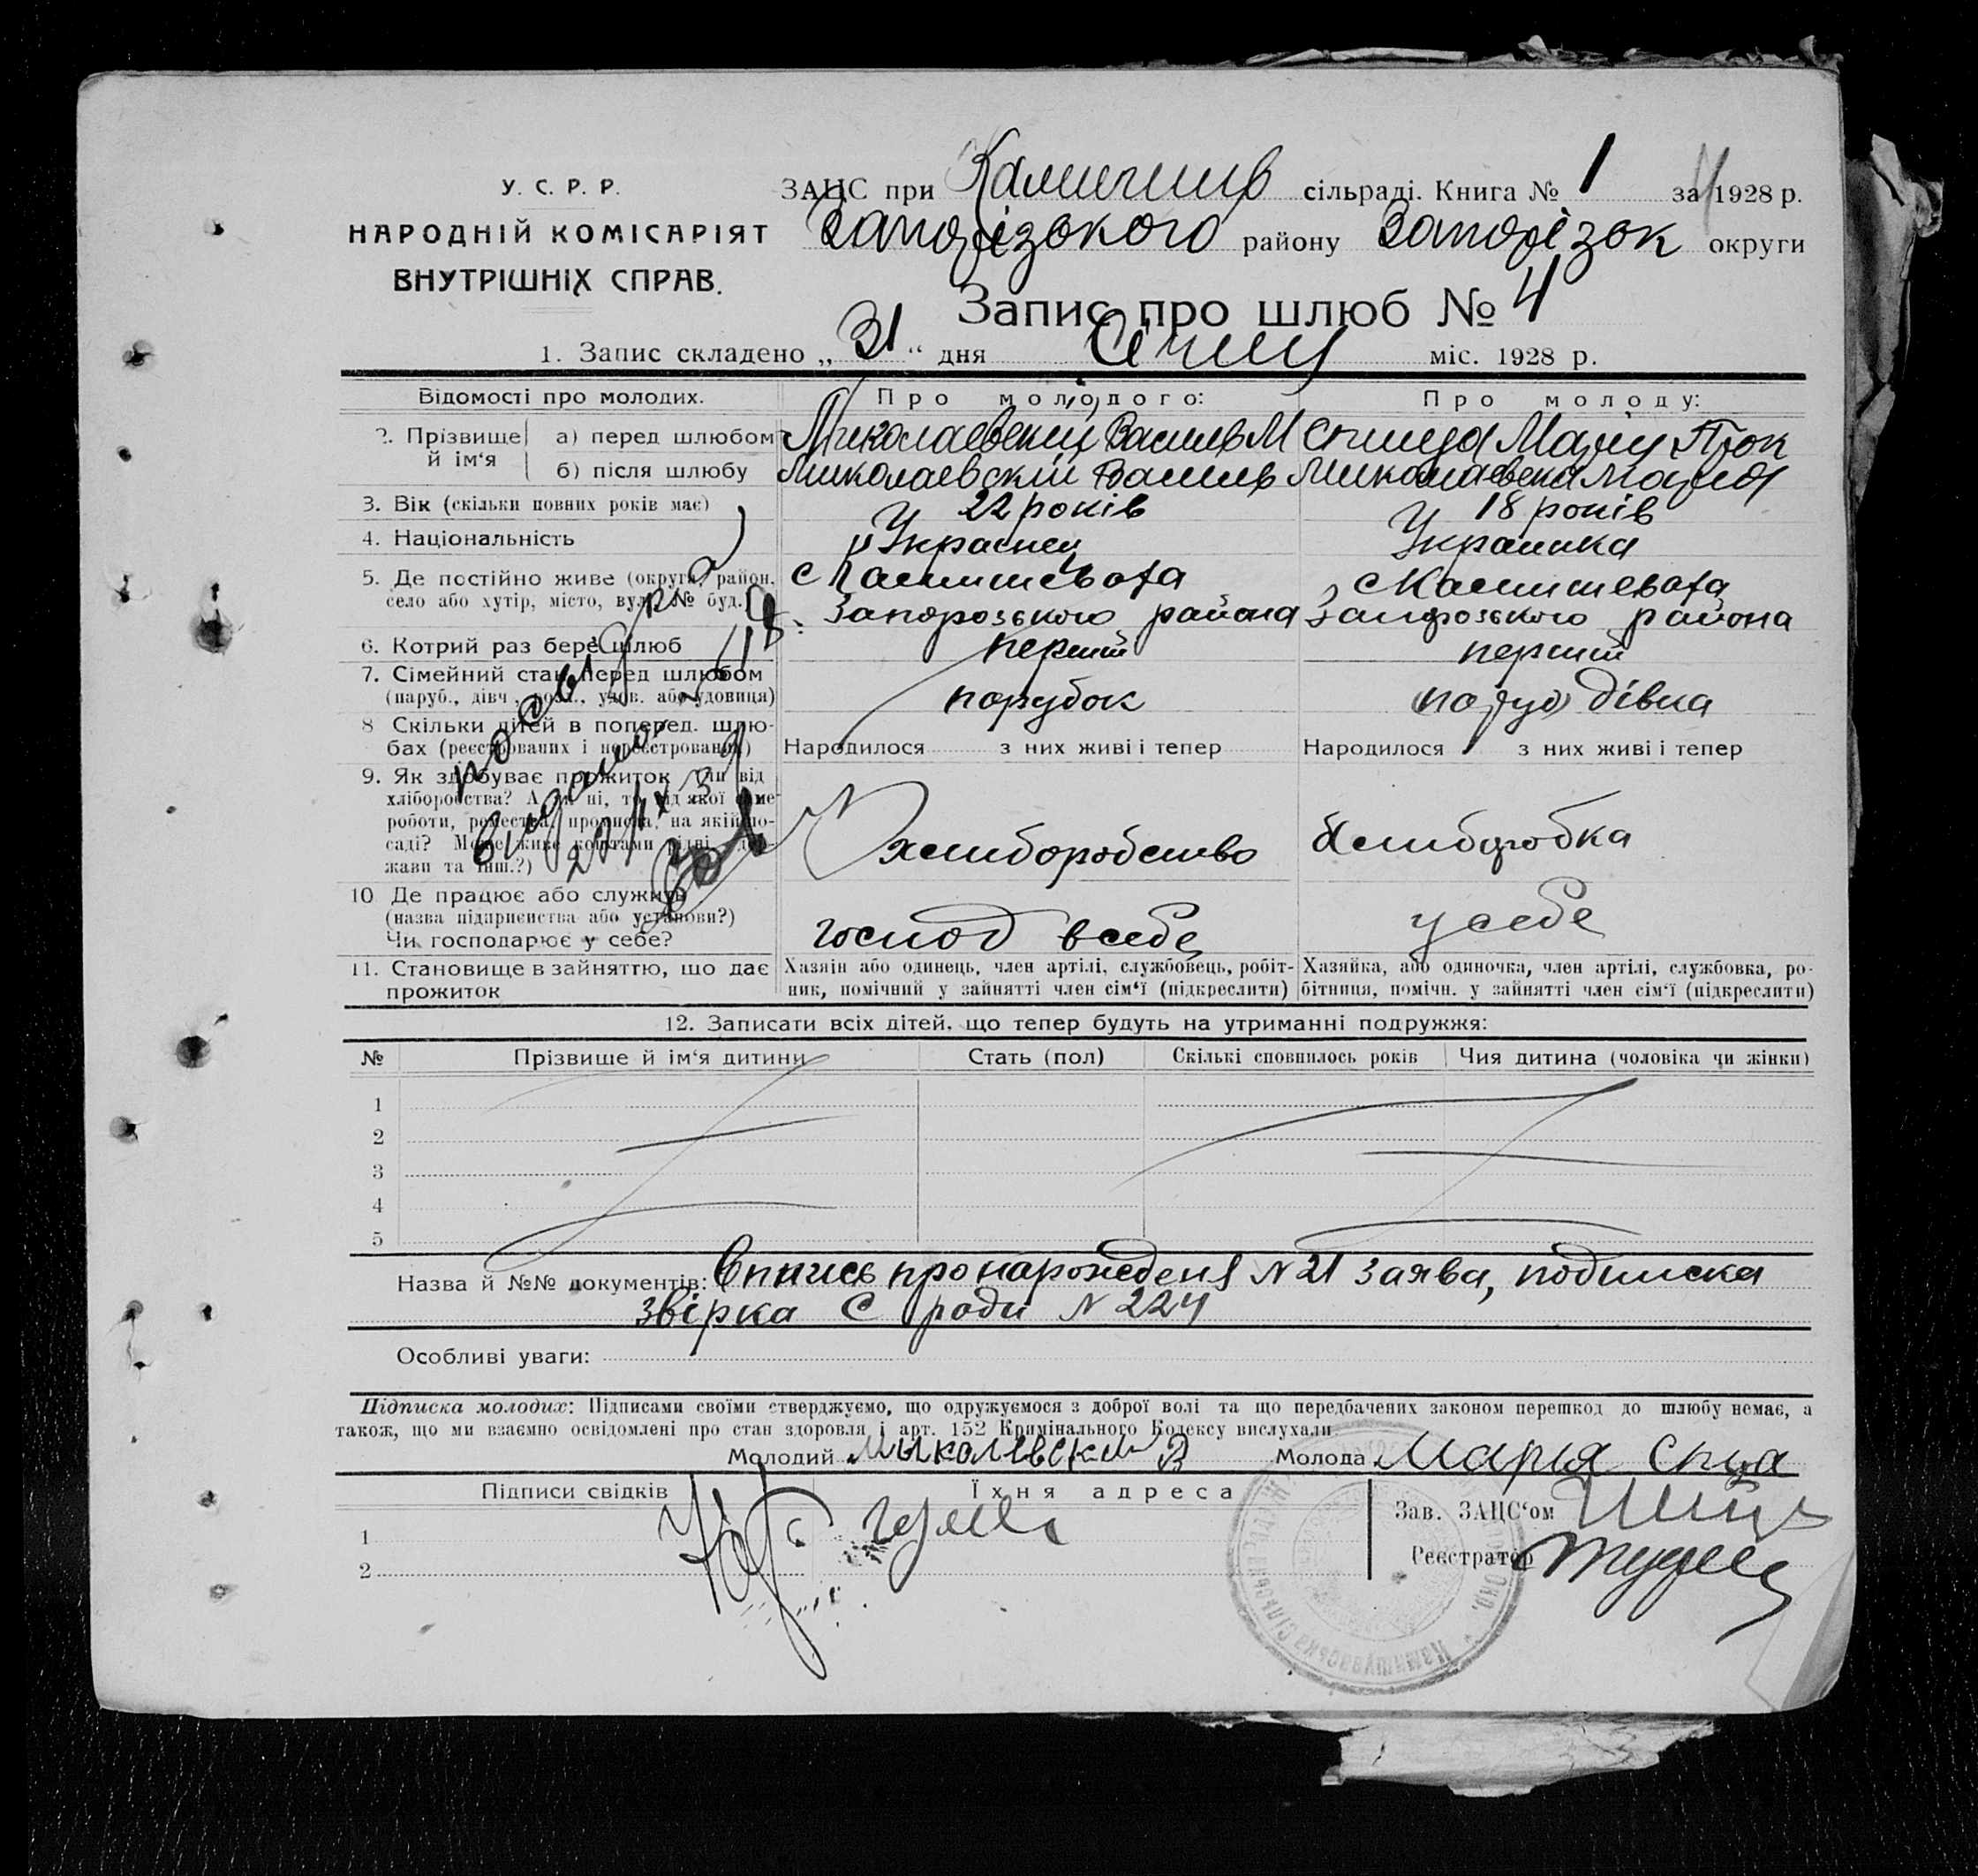 У. С. Р. Р.
НАРОДНІЙ КОМІСАРІЯТ
ВНУТРІШНІХ СПРАВ.
ЗАЦС при Камишув сільраді. Книга № 1 за 1928 р.
Запорізького району Запорізок округи
Запис про шлюб № 4
1. Запис складено „ 31 “ дня Січня міс. 1928 р.
Відомості про молодих. Про молодого: Про молоду:
2. Прізвище й ім‘я
а) перед шлюбом Миколаевский Василь М Марія Прок
б) після шлюбу Миколаевскій Василь Миколаевска Марія
3. Вік (скільки повних років має) 22 років 18 років
4. Національність Українка
5. Де постійно живе (округа, район, село або хутір, місто, вул., № буд.)
с Камишевата с Камишевата
Запорозького района Запорозького района
6. Котрий раз бере шлюб перший перший
7. Сімейний стан перед шлюбом
(паруб., дівч., розл., удов. або удовиця) порубок дівка
8 Скільки дітей в поперед. шлю-
бах (реєстрованих і нереєстрованих) Народилося з них живі і тепер Народилося з них живі і тепер
9. Як здобуває прожиток чи від
хліборобства? А як ні, то від якої саме
роботи, ремества, промисла, на якій по-
саді? Може живе коштами рідні, дер-
жави та інш.?)
хлиборобство хлиборобка
10 Де працює або служить
(назва підприємства або установи?)
Чи господарює у себе?
господ в себе у себе
11. Становище в зайняттю, що дає
прожиток
Хазяїн або одинець, член артілі, службовець, робіт-
ник, помічний у зайнятті член сім‘ї (підкреслити)
Хазяйка, або одиночка, член артілі, службовка, ро-
бітниця, помічн. у зайнятті член сім‘ї (підкреслити)
12. Записати всіх дітей, що тепер будуть на утриманні подружжя:
№ Прізвище й ім‘я дитини Стать (пол) Скількі сповнилось років Чия дитина (чоловіка чи жінки)
1
2
3
4
5
Назва й №№ документів: про нарождения N 21 заява, подписка
звірка С роди N 224
Особливі уваги:
Підписка молодих: Підписами своїми стверджуємо, що одружуємося з доброї волі та що передбачених законом перешкод до шлюбу немає, а
також, що ми взаємно освідомлені про стан здоровля і арт. 152 Кримінального Кодексу вислухали
Молодий Миколевский В Молода Марія
Підписи свідків Їхня адреса
Зав. ЗАЦС‘ом
1
Реєстратор
2